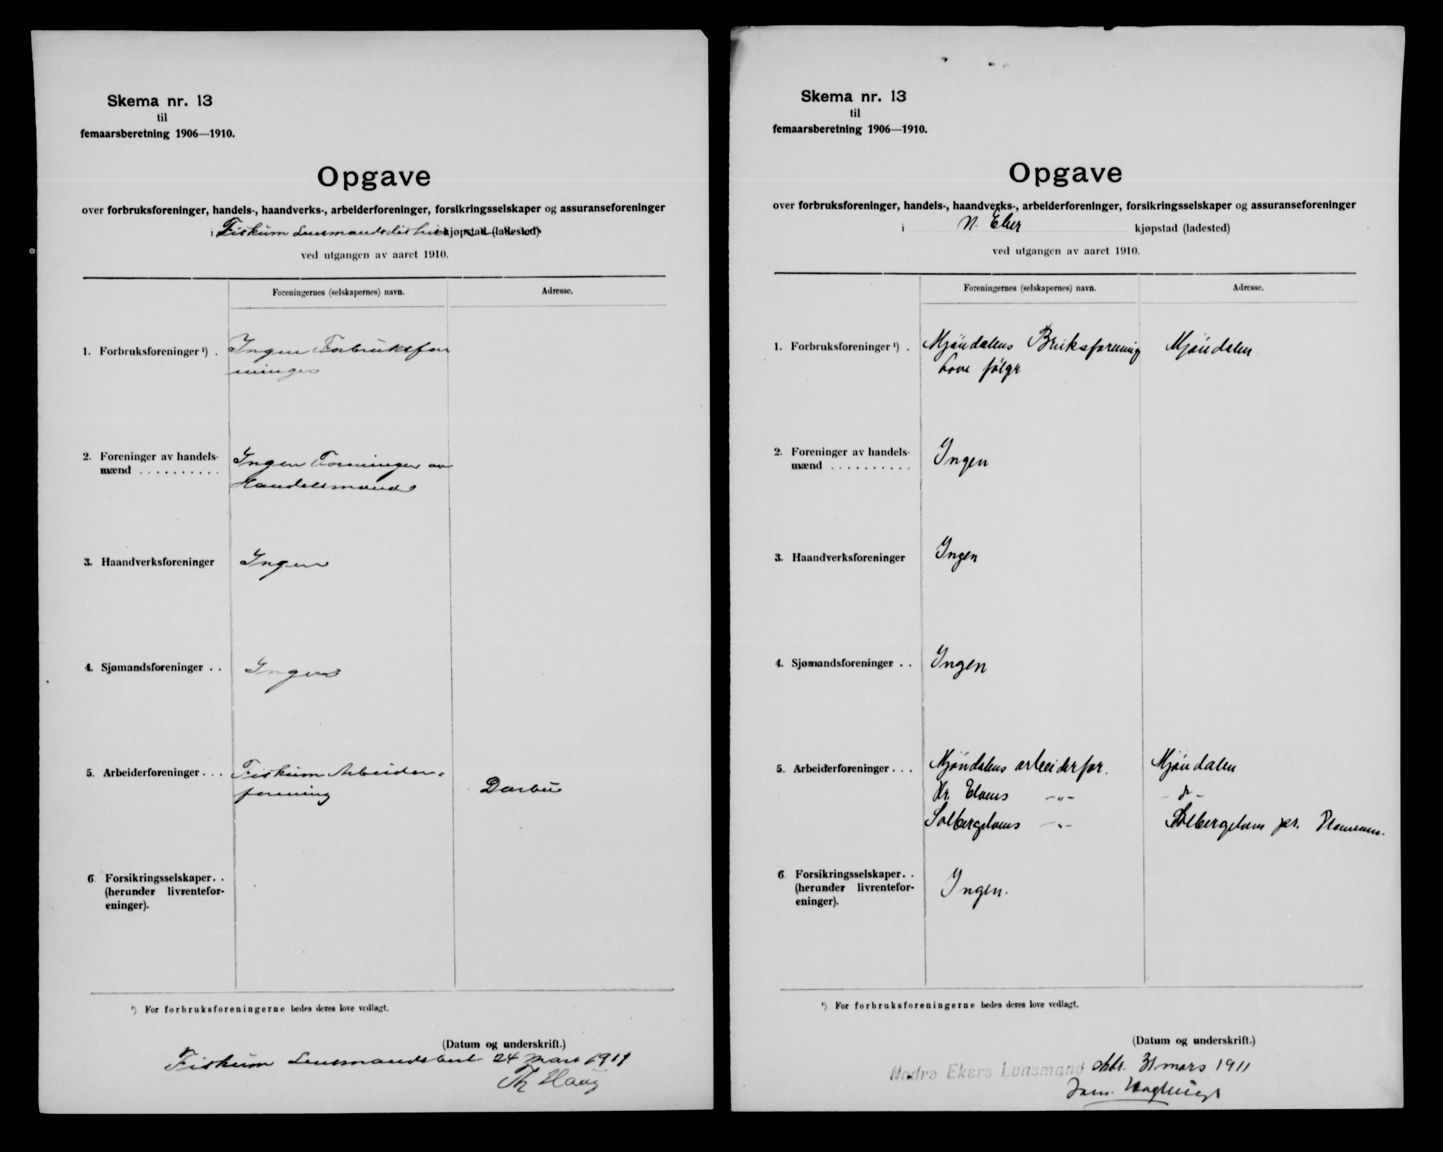 Skema nr. 13
til
femaarsberetning 1906—1910.
Opgave
over forbruksforeninger, handels-, haandverks-, arbeiderforeninger, forsikringsselskaper og assuranseforeninger
i Fiskum Lensmandsdistrikt kjøpstad (ladested)
ved utgangen av aaret 1910.
Foreningernes (selskapernes) navn.
Adresse.
1. Forbruksforeninger ¹) .
Ingen Forbruksfor
eninger
2. Foreninger av handels-
mænd . . . . . . . . . .
Ingen Foreninger av
Handelsmænd
3. Haandverksforeninger
Ingen
4. Sjømandsforeninger . .
Ingen
5. Arbeiderforeninger . . .
Fiskum Arbeider-
forening
Darbu
6 Forsikringsselskaper. .
(herunder livrentefor-
eninger).
¹) For forbruksforeningerne bedes deres love vedlagt.
(Datum og underskrift.)
Fiskum Lensmandsbest 24 Mars 1911
Th Haug
Skema nr. 13
til
femaarsberetning 1906—1910.
Opgave
over forbruksforeninger, handels-, haandverks-, arbeiderforeninger, forsikringsselskaper og assuranseforeninger
i N. Eker kjøpstad (ladested)
ved utgangen av aaret 1910.
Foreningernes (selskapernes) navn.
Adresse.
1. Forbruksforeninger ¹) .
Mjöndalens Bruksforening
Mjöndalen
Love følger
2. Foreninger av handels-
mænd . . . . . . . . . .
Ingen
3. Haandverksforeninger
Ingen
4. Sjømandsforeninger . .
Ingen
5. Arbeiderforeninger . . .
Mjöndalens arbeiderfor.
Mjöndalen
Kr. Elvens -„-
- d -
Solbergelvens -„-
Solbergelven pr. Drammen.
6 Forsikringsselskaper. .
(herunder livrentefor-
eninger).
Ingen.
¹) For forbruksforeningerne bedes deres love vedlagt.
(Datum og underskrift.)
Nedre Ekers Lensmand 31 mars 1911